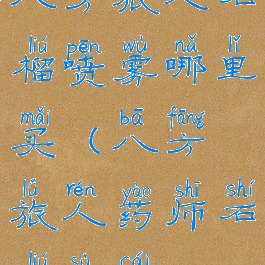 liú pēn wù nǎ lǐ
榴喷雾哪里
mǎi ( bā fāng
买(八方
lǚ rén yào shī shí
旅人药师石
liú sù cái